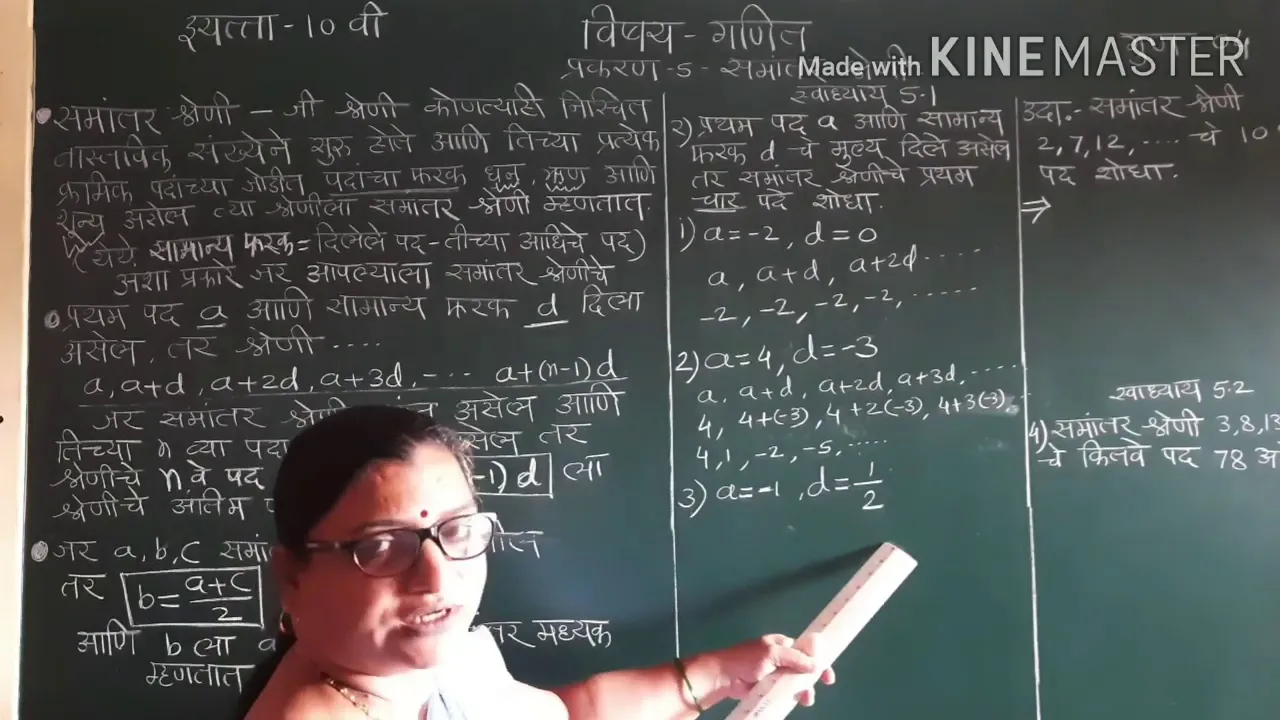 इयत्ता - 10 वी
विषय - गणित
प्रकरण - 5 - समांतर
Made with KINEMASTER
• समांतर श्रेणी - जी श्रेणी कोणत्याही निश्चित
वास्तविक संख्येने सुरु होते आणि तिच्या प्रत्येक
क्रमिक पदांच्या जोडीत पदांचा फरक धन, ऋण आणि
शून्य असेल त्या श्रेणीला समांतर श्रेणी म्हणतात.
(येथे, सामान्य फरक = दिलेले पद - तीच्या आधिचे पद)
अशा प्रकारे जर आपल्याला समांतर श्रेणीचे
• प्रथम पद a आणि सामान्य फरक d दिला
असेल. तर श्रेणी ....
a, a+d, a+2d, a+3d, -... a+(n-1)d
जर समांतर असेल आणि
तिच्या n व्या तर
श्रेणीचे n वे पद -1) d ला
श्रेणीचे अंतिम
• जर a, b, c
तर b = \frac{a+c}{2}
आणि b ला मध्यक
म्हणतात
स्वाध्याय 5.1
२) प्रथम पद a आणि सामान्य
फरक d चे मुल्य दिले असेल
तर समांतर श्रेणीचे प्रथम
चार पदे शोधा.
1) a = -2, d = 0
a, a+d, a+2d .....
-2, -2, -2, -2, ......
2) a = 4, d = -3
a, a+d, a+2d, a+3d, .....
4, 4+(-3), 4+2(-3), 4+3(-3), ..
4, 1, -2, -5, .....
3) a = -1, d = \frac{1}{2}
उदा.- समांतर श्रेणी
2, 7, 12, ..... चे 10
पद शोधा.
⇒
स्वाध्याय 5.2
4) समांतर श्रेणी 3, 8, 13
चे कितवे पद 78